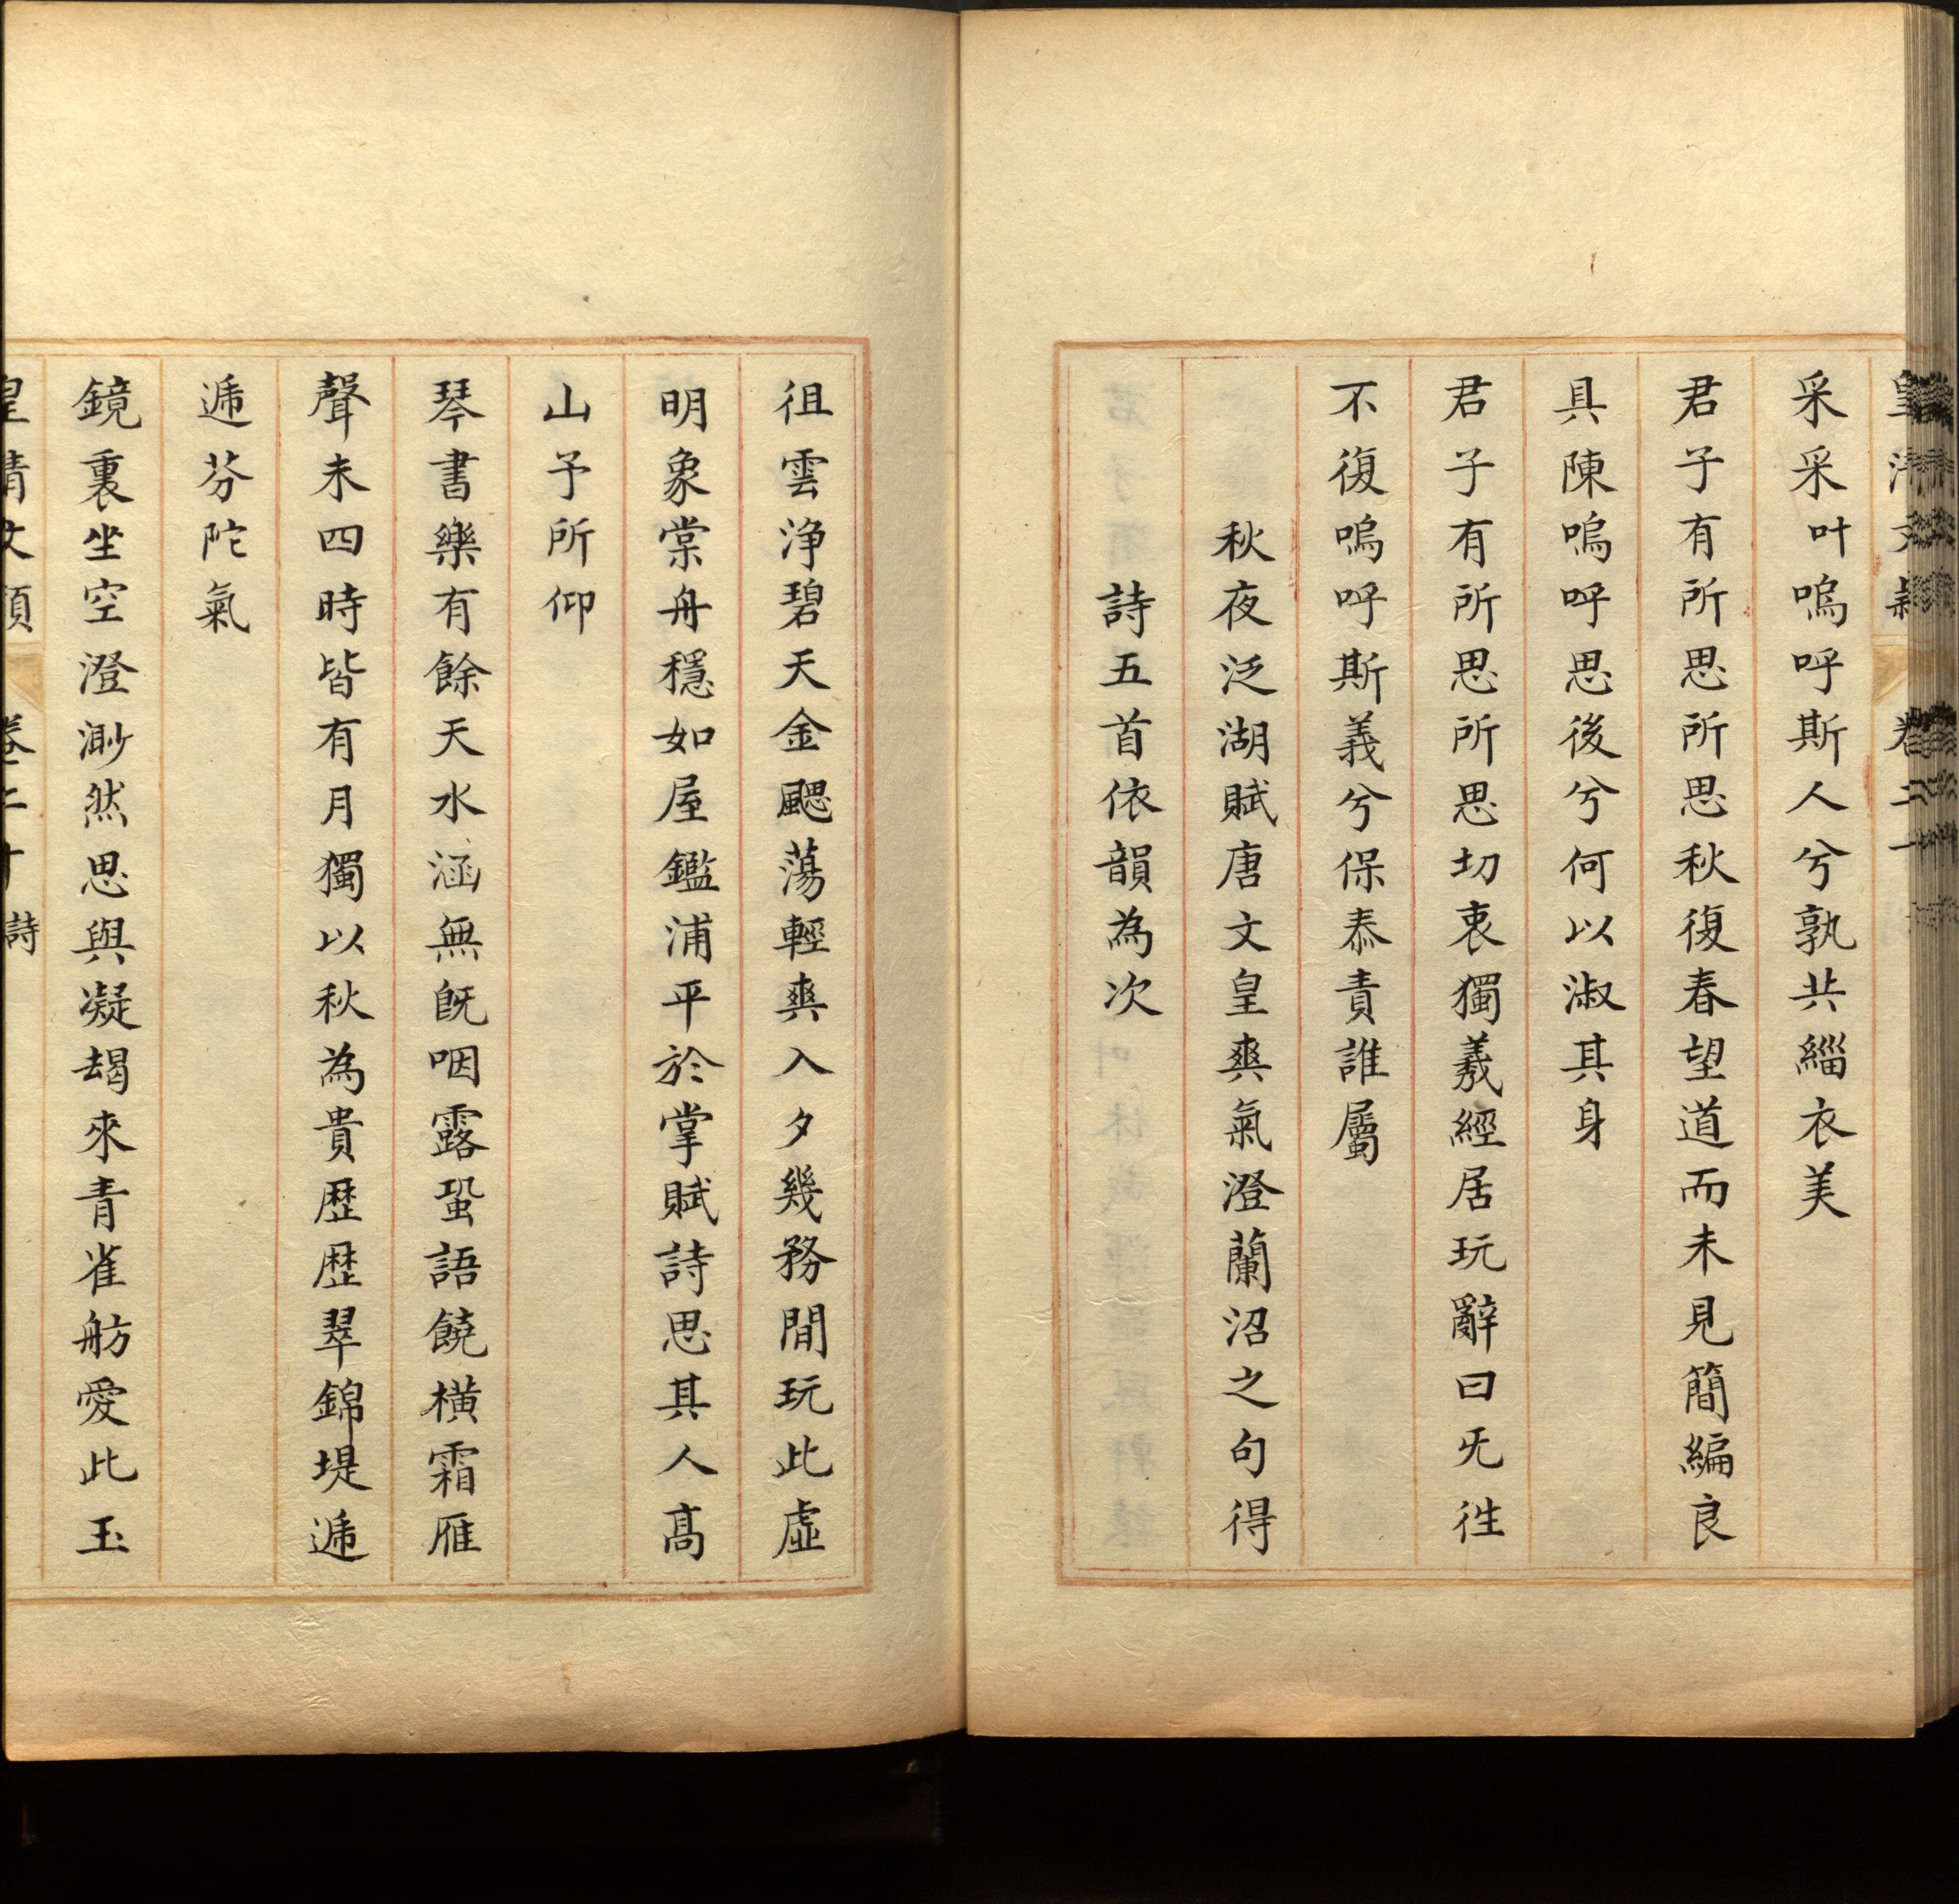 皇清文穎 卷二十
采采叶嗚呼斯人兮孰共緇衣美
君子有所思所思秋復春望道而未見簡編良
具陳嗚呼思後兮何以淑其身
君子有所思所思切衷獨羲經居玩辭曰旡徃
不復嗚呼斯義兮保泰責誰屬
秋夜泛湖賦唐文皇爽氣澄蘭沼之句得
詩五首依韻為次
徂雲浄碧天金颸蕩輕爽入夕幾務閒玩此虛
明象棠舟穩如屋鑑浦平於掌賦詩思其人高
山予所仰
琴書樂有餘天水涵無旣咽露蛩語饒橫霜雁
聲未四時皆有月獨以秋為貴歴歴翠錦堤遞
遞芬陀氣
鏡裏坐空澄渺然思與凝朅來青雀舫愛此玉
皇清文穎 卷二十 詩